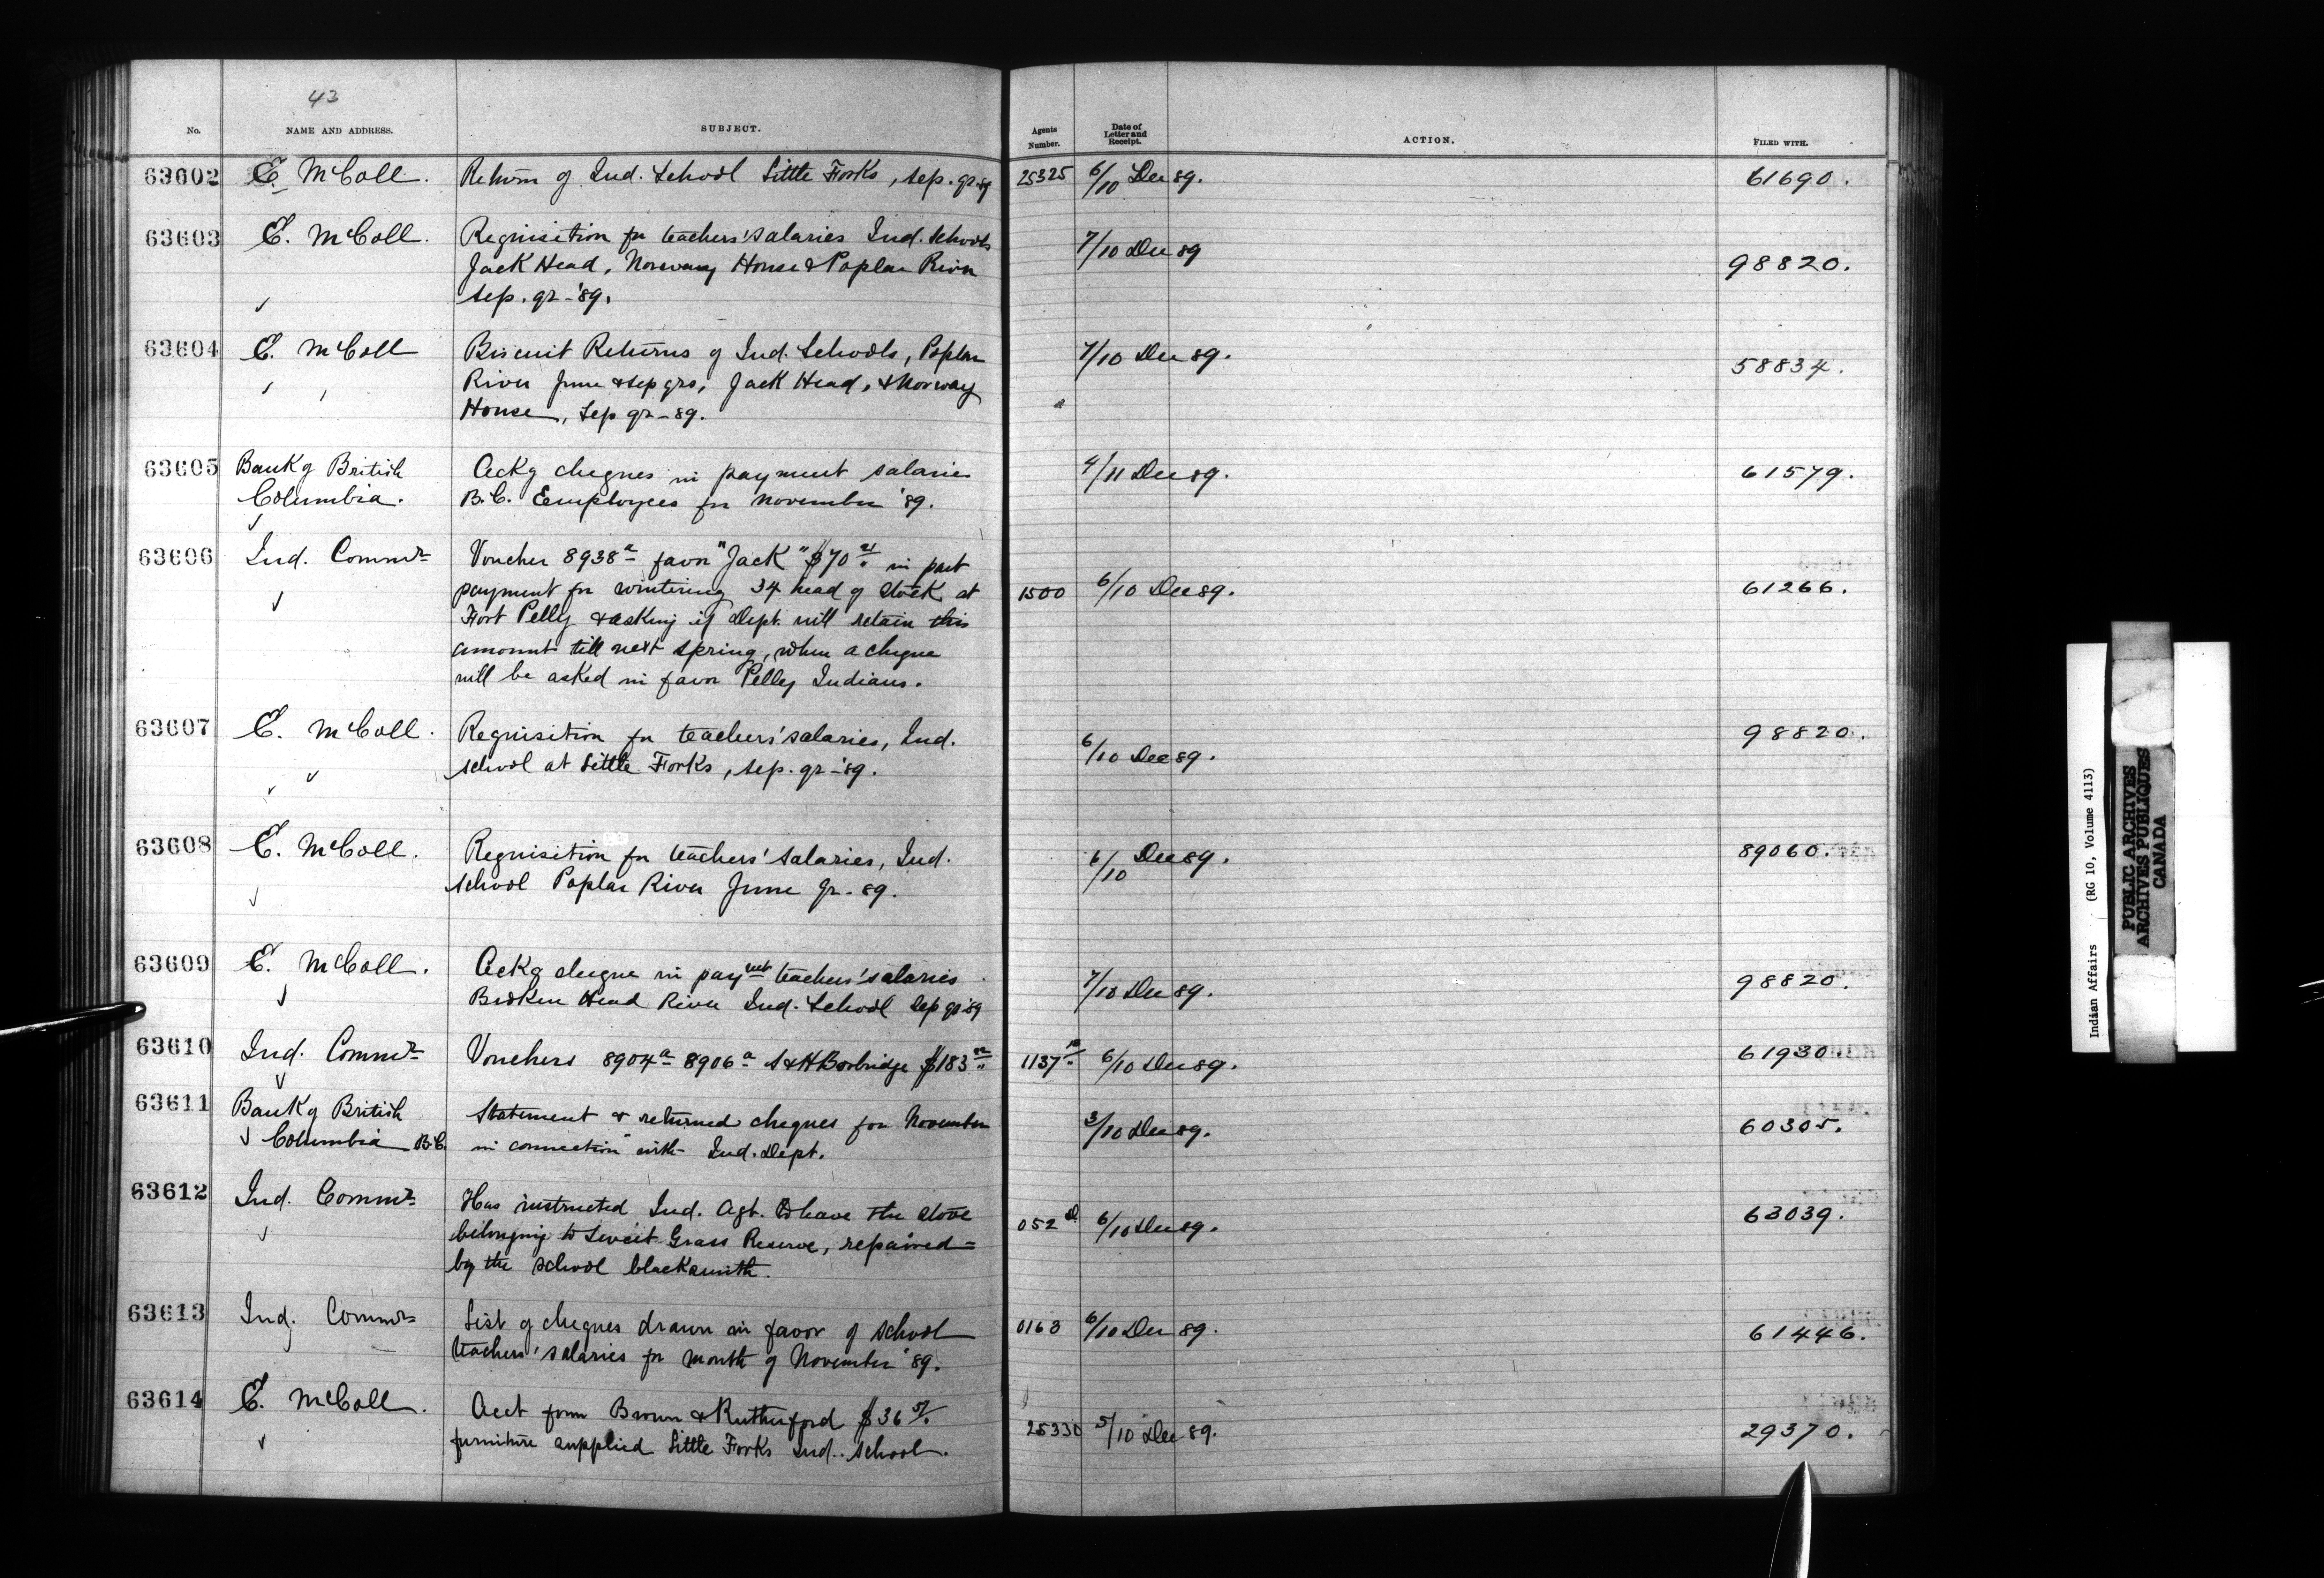 43
No. NAME AND ADDRESS. SUBJECT. Agents Number. Date of Letter and Receipt. ACTION. FILED WITH.
63602 E. McColl. Return of Ind. School Little Forks, Sep. qr 89 25325 6/10 Dec 89. 61690.
63603 E. McColl. Requisition for teachers' salaries Ind. Schools 7/10 Dec 89 98820.
Jack Head, Norway House & Poplar River
Sep. qr - '89.
63604 E. McColl Biscuit Returns of Ind. Schools, Poplar 7/10 Dec 89. 58834.
River June & Sep qrs, Jack Head, & Norway
House, Sep qr - 89.
63605 Bank of British Ackg cheques in payment salaries 4/11 Dec 89. 61579.
Columbia. B.C. Employees for November '89.
63606 Ind. Commr Voucher 8938a favor "Jack" $70 in part
payment for wintering 34 head of stock at 1500 6/10 Dec 89. 61266.
Fort Pelly & asking if Dept. will retain this
amount till next spring, when a cheque
will be asked in favor Pelly Indians.
63607 E. McColl. Requisition for teachers' salaries, Ind. 6/10 Dec 89. 98820.
school at Little Forks, Sep. qr - '89.
63608 E. McColl. Requisition for teachers' salaries, Ind. 6/10 Dec 89. 89060.
school Poplar River June qr - 89.
63609 E. McColl. Ackg cheque in payment teachers' salaries 7/10 Dec 89. 98820.
Broken Head River Ind. School Sep qr '89
63610 Ind. Commr Vouchers 8904a 8906a S & H Borbridge $183 1137 6/10 Dec 89. 61930
63611 Bank of British Statement & returned cheques for November 3/10 Dec 89. 60305.
Columbia B.C. in connection with Ind. Dept.
63612 Ind. Commr Has instructed Ind. Agt. to have the stove 052 6/10 Dec 89. 63039.
belonging to Sweet Grass Reserve, repaired
by the school blacksmith.
63613 Ind. Commr List of cheques drawn in favor of school 0163 6/10 Dec 89. 61446.
teachers' salaries for month of November '89.
63614 E. McColl. Acct from Brown & Rutherford $36 51/ 25330 5/10 Dec 89. 29370.
furniture supplied Little Forks Ind. school.
Indian Affairs (RG 10, Volume 4113)
PUBLIC ARCHIVES
ARCHIVES PUBLIQUES
CANADA